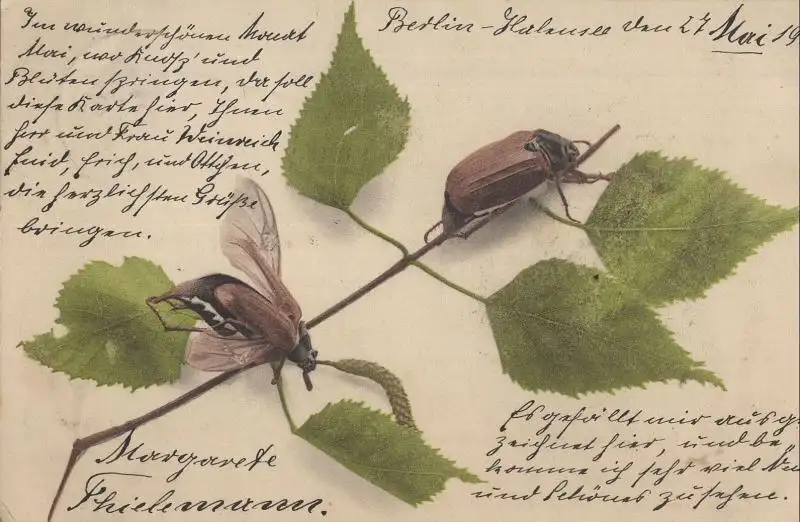 Berlin-Halensee den 27 Mai 19
Im wunderschönen Monat
Mai, wo Knosp' und
Blüten springen, da soll
diese Karte hier, Ihnen
Herr und Frau Weinreich
Enid, Erich, und Ottchen,
die herzlichsten Grüße
bringen.
Es gefällt mir ausge
zeichnet hier, und be-
komme ich sehr viel
und Schönes zu sehen.
Margarete
Thielemann.